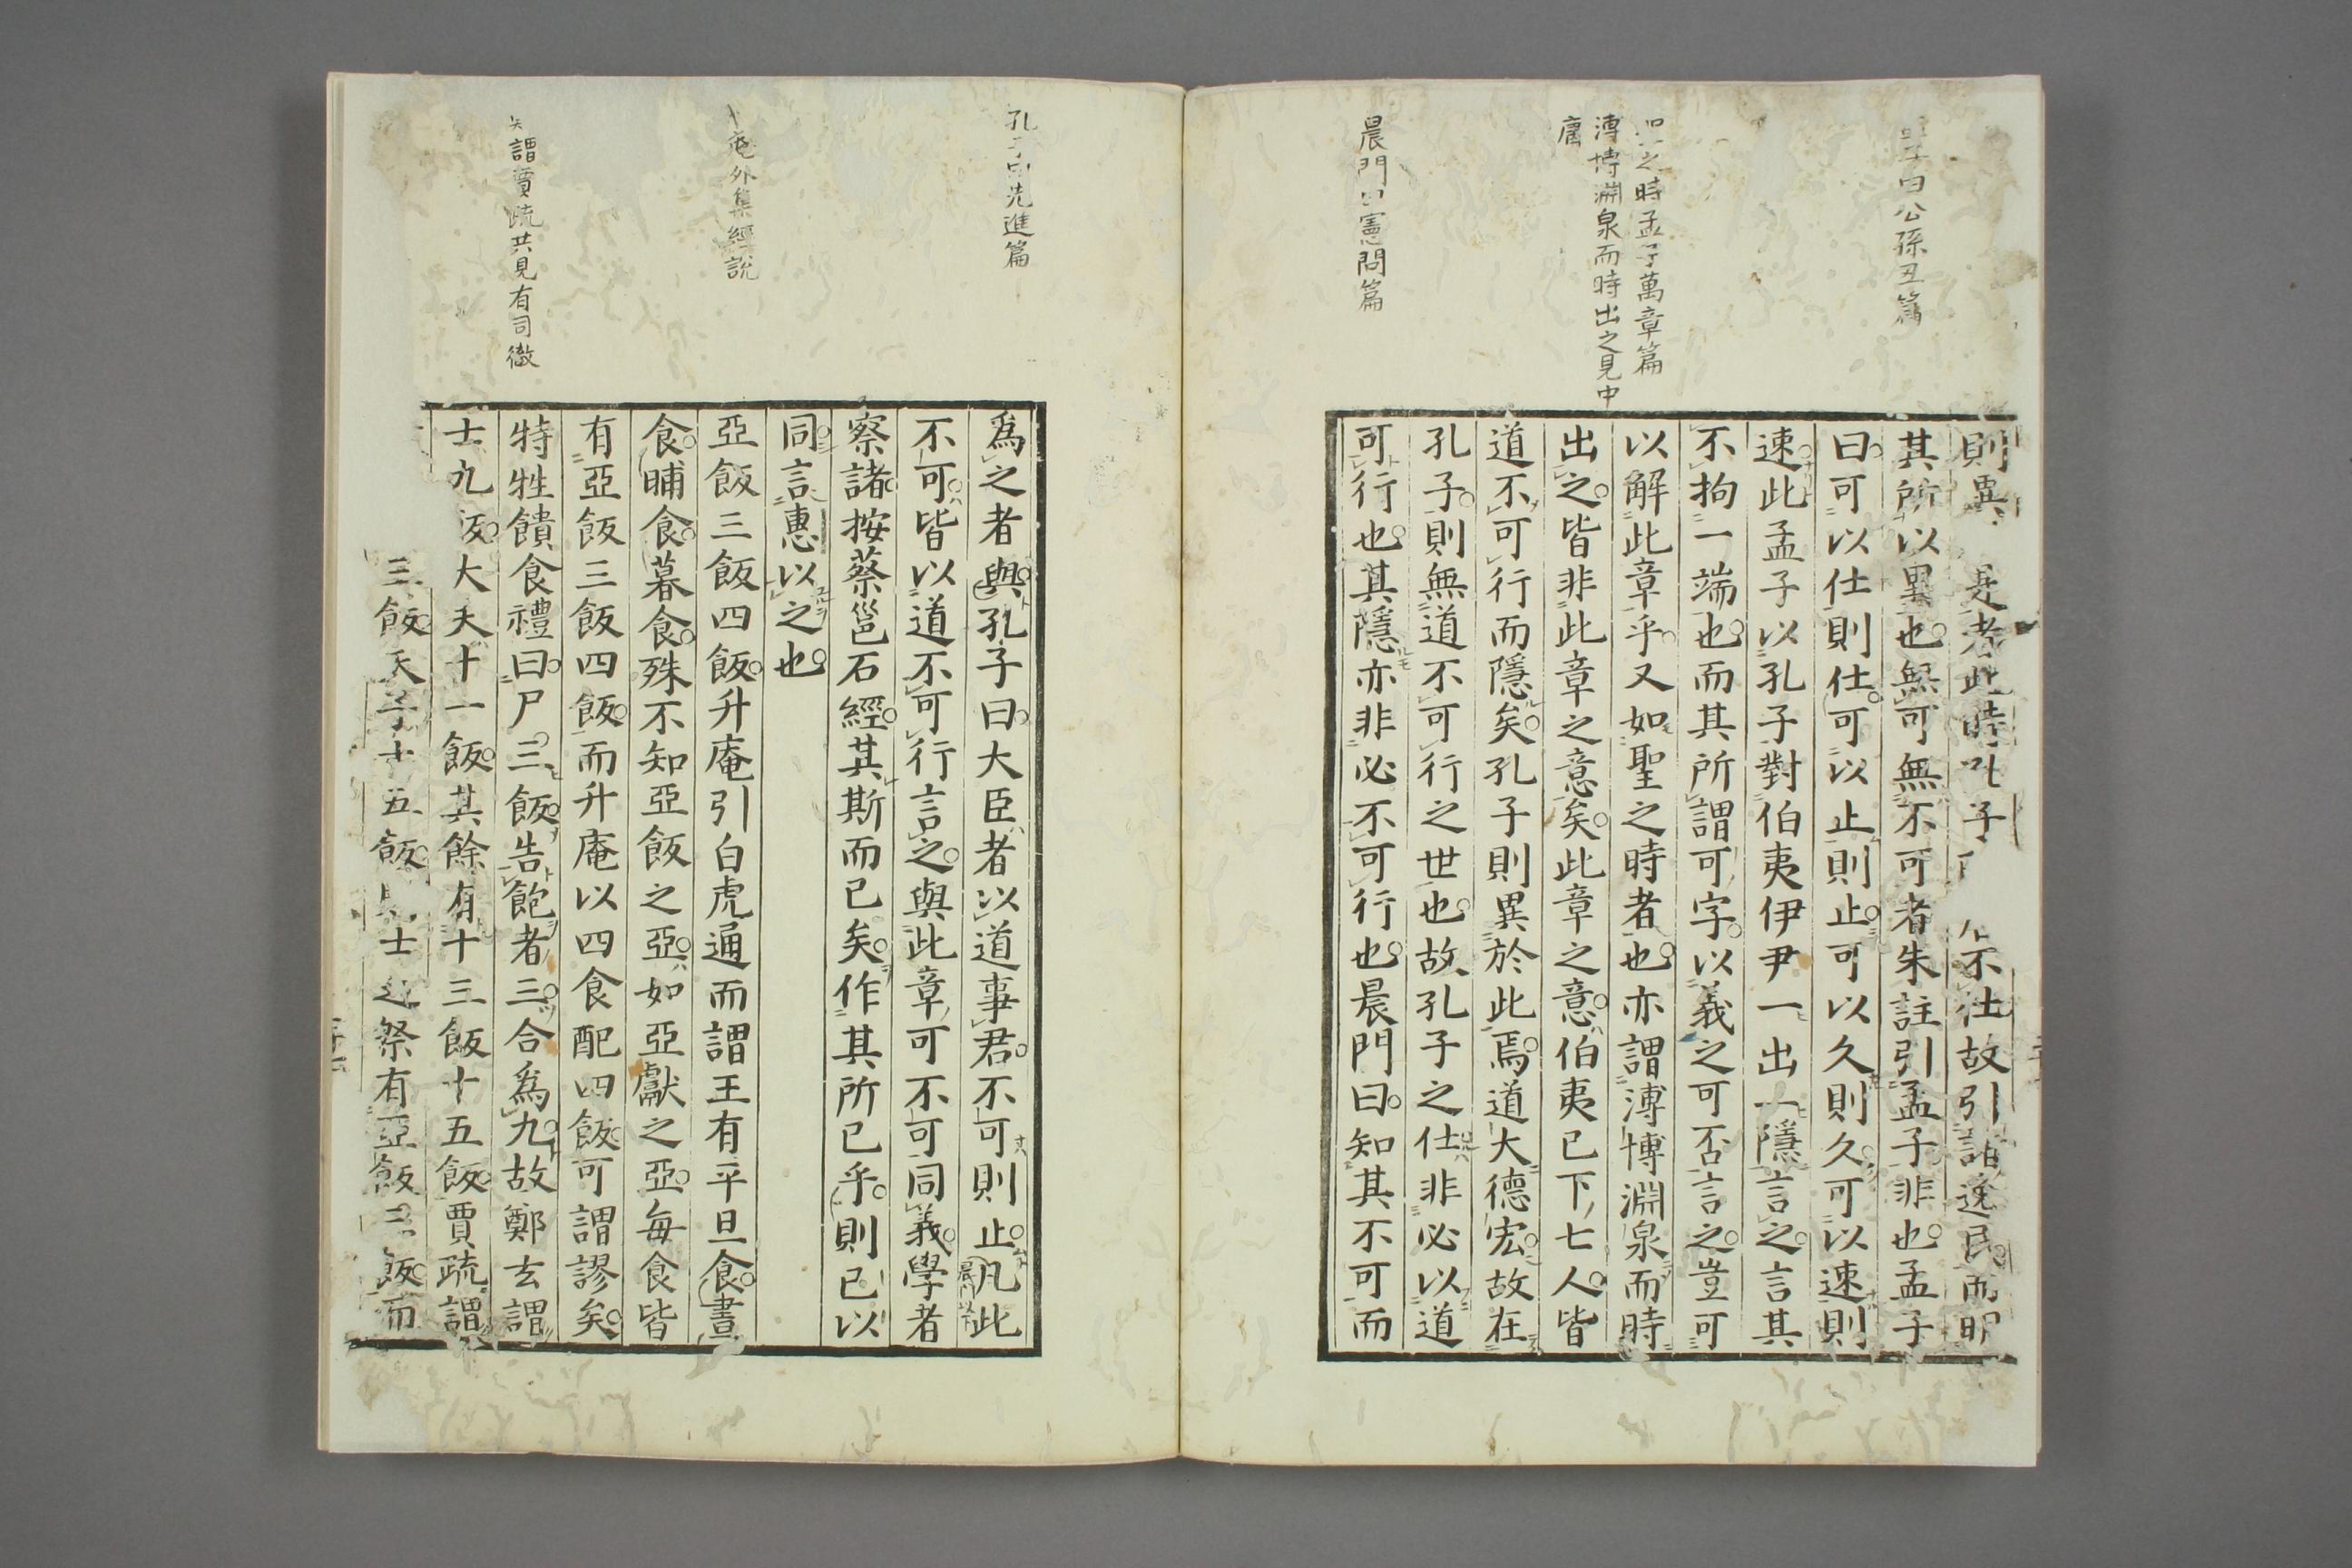 子曰公孫丑篇
之時孟子萬章篇
溥博淵泉而時出之見中
庸
晨門曰憲問篇
則異是者此時孔子不仕故引諸逸民而明
其所以異也無可無不可者朱註引孟子非也孟子
曰可以仕則仕可以止則止可以久則久可以速則
速此孟子以孔子對伯夷伊尹一出一隱言之言其
不拘一端也而其所謂可字以義之可否言之豈可
以解此章乎又如聖之時者也亦謂溥博淵泉而時
出之皆非此章之意矣此章之意伯夷已下七人皆
道不可行而隱矣孔子則異於此焉道大德宏故在
孔子則無道不可行之世也故孔子之仕非必以道
可行也其隱亦非必不可行也晨門曰知其不可而
孔子曰先進篇
庵外集經說
謂賈疏共見有司徹
爲之者與孔子曰大臣者以道事君不可則止凡此
不可皆以道不可行言之與此章可不可同義學者
察諸按蔡邕石經其斯而已矣作其所已乎則已以
同言惠以之也
亞飯三飯四飯升庵引白虎通而謂王有平旦食晝
食晡食暮食殊不知亞飯之亞如亞獻之亞每食皆
有亞飯三飯四飯而升庵以四食配四飯可謂謬矣
特牲饋食禮曰尸三飯告飽者三合爲九故鄭玄謂
士九飯大夫十一飯其餘有十三飯十五飯賈疏謂
三飯天子十五飯士之祭有亞飯三飯而